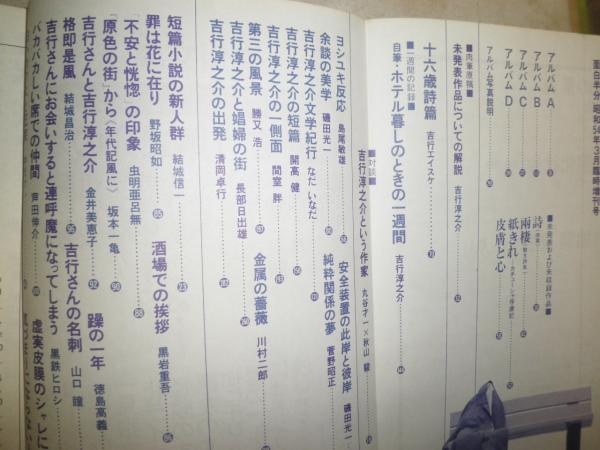 面白半分 昭和54年3月臨時増刊号
アルバム A
アルバム B
アルバム C
アルバム D
アルバム写真説明
■未発表および未収録作品■
詩
兩棲
紙きれ
皮膚と心
■肉筆原稿■
未発表作品についての解説 吉行淳之介
十六歳詩篇 吉行エイスケ
■一週間の記録■
自筆・ホテル暮しのときの一週間 吉行淳之介
■対談■
吉行淳之介という作家 丸谷才一×秋山駿
ヨシユキ反応 島尾敏雄
安全装置の此岸と彼岸 磯田光一
余談の美学 磯田光一
純粋関係の夢 菅野昭正
吉行淳之介文学紀行 なだいなだ
吉行淳之介の短篇 開高健
吉行淳之介の一側面 間室胖
第三の風景 勝又浩
金属の薔薇 川村二郎
吉行淳之介と娼婦の街 長部日出雄
吉行淳之介の出発 清岡卓行
短篇小説の新人群 結城信一
罪は花に在り 野坂昭如
酒場での挨拶 黒岩重吾
「不安と恍惚」の印象 虫明亜呂無
「原色の街」から〈年代記風に〉 坂本一亀
躁の一年 徳島高義
吉行さんと吉行淳之介 金井美恵子
格即是風 結城昌治
吉行さんの名刺 山口瞳
吉行さんにお会いすると連呼魔になってしまう 黒鉄ヒロシ
バカバカしい席での仲間 芦田伸介
虚実皮膜のシャレに